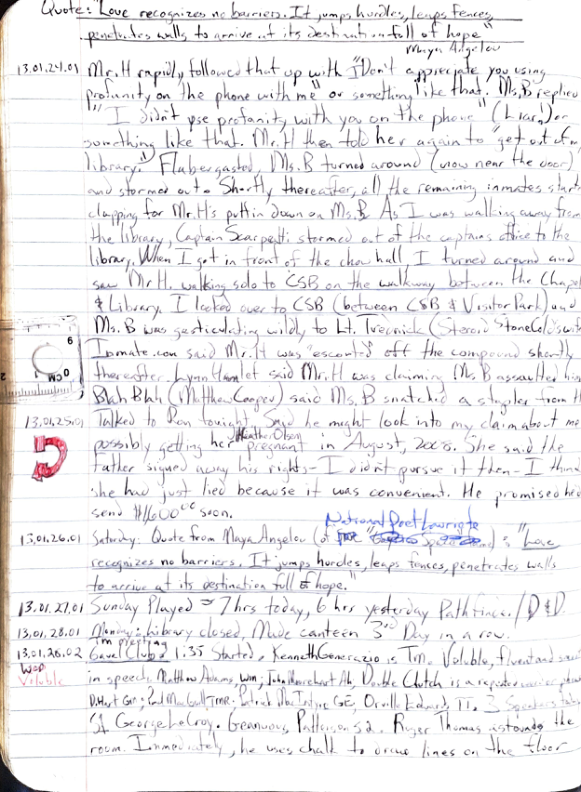 Quote: "Love recognizes no barriers. It jumps hurdles, leaps fences,
penetrates walls to arrive at its destination full of hope"
Maya Angelou
13.01.24.01 Mr. H rapidly followed that up with "I Don't appreciate you using
profanity on the phone with me" or something like that. Ms. B replied
"I didn't use profanity with you on the phone" (Liar!) or
something like that. Mr. H then told her again to "get out of
library." Flabergasted, Ms. B turned around (now near the door)
and stormed out. Shortly thereafter, all the remaining inmates
clapping for Mr. H's puttin down on Ms. B. As I was walking away from
the library, Captain Scarpatti stormed out of the captains office to the
library. When I got in front of the chow hall I turned around and
saw Mr. H. walking solo to CSB on the walkway between the Chapel
& Library. I looked over to CSB (between CSB & Visitor Park) and
Ms. B was gesticulating wildly to Lt. (Steroid
Inmate.com said Mr. H was "escorted" off the compound shortly
thereafter. Lynn Hamlet said Mr. H was claiming Ms. B assaulted him
Blah Blah (Matthew Cooper) said Ms. B snatched a stapler from
13.01.25.01 Talked to Ron tonight. Said he might look into my claim about me
possibly getting her Heather Olson pregnant in August, 2008. She said the
Father signed away his rights - I didn't pursue it then - I think
she had just lied because it was convenient. He promised he'd
send $1600.00 soon.
National Poet Lauriate
13.01.26.01 Saturday: Quote from Maya Angelou "Love
recognizes no barriers. It jumps hurdles, leaps fences, penetrates walls
to arrive at its destination full of hope."
13.01.27.01 Sunday Played 7 hrs today, 6 hrs yesterday Pathfinder / D&D
13.01.28.01 Monday: Library closed, Made canteen 3rd Day in a row.
I'm playing
13.01.28.02 Gavel Club 1:35 Started, Kenneth Generazio is Tm. Voluble, fluent and
WOD
Voluble
in speech. Matthew Adams, Wm; John Ah, Double Clutch is a repeater
D. Hart Grm; Paul MacCall TMR; Patrick MacIntyre GE, Orville Edward, TT. 3 Speakers
1. George LeCroy. 2. Roger Thomas astounds the
room. Immediately, he uses chalk to draw lines on the floor
6
0 CM